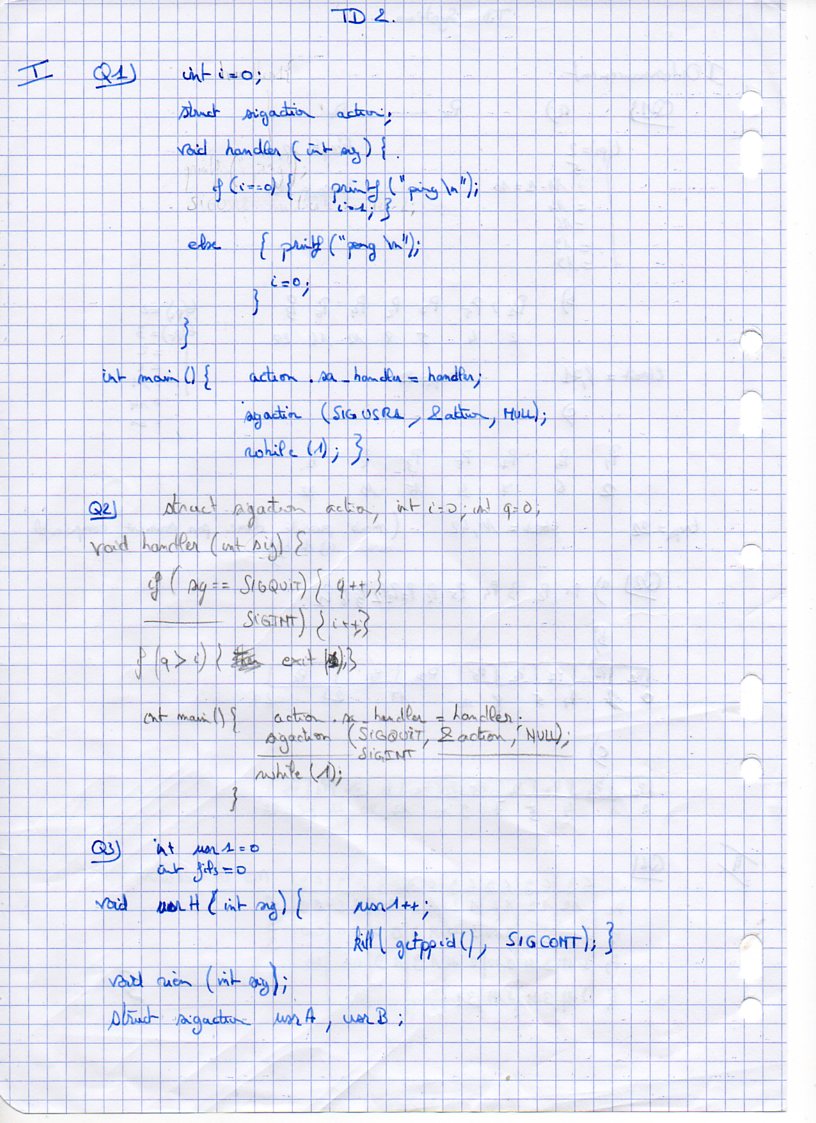 TD 2.
I Q1) int i=0;
struct sigaction action;
void handler (int sig) {
if (i==0) { printf ("ping \n");
i=1; }
else { printf ("pong \n");
i=0;
}
}
int main () { action . sa_handler = handler;
sigaction (SIGUSR1, &action, NULL);
while (1); }.
Q2) struct sigaction action, int i=0; int q=0;
void handler (int sig) {
if ( sig == SIGQUIT) { q++;}
SIGINT) { i++;}
if (q > i) { exit ();}
int main () { action . sa_handler = handler;
sigaction (SIGQUIT, &action, NULL);
SIGINT
while (1);
}
Q3) int usr1=0
int fils=0
void usrH (int sig) { usr1++;
kill( getppid(), SIGCONT); }
void rien (int sig);
struct sigaction usrA, usrB;